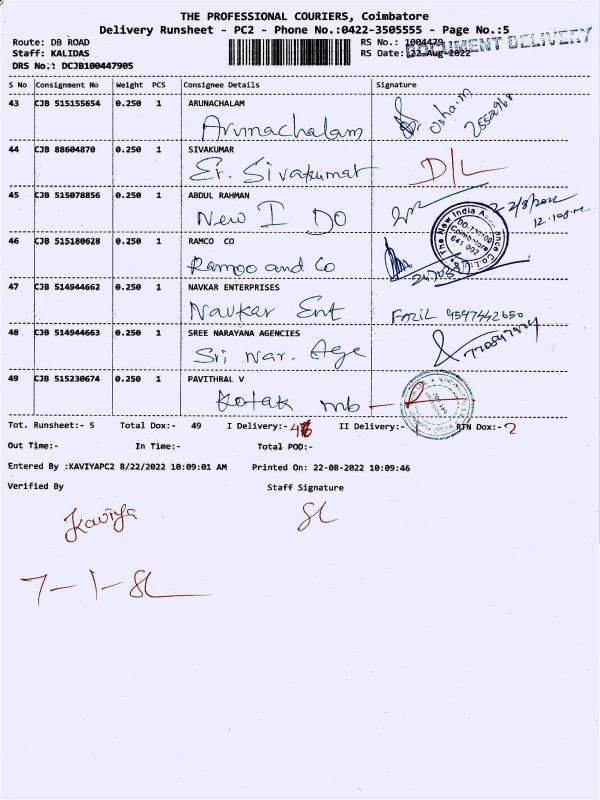 THE PROFESSIONAL COURIERS, Coimbatore
Delivery Runsheet - PC2 - Phone No.:0422-3505555 - Page No.:5
Route: DB ROAD
RS No.: 1004479
DOCUMENT DELIVERY
Staff: KALIDAS
RS Date: 22-Aug-2022
DRS No.: DCJB100447905
S No Consignment No Weight PCS Consignee Details Signature
43 CJB 515155654 0.250 1 ARUNACHALAM
Arunachalam
44 CJB 88604870 0.250 1 SIVAKUMAR
Er. Sivakumar D/L
45 CJB 515078856 0.250 1 ABDUL RAHMAN
New I DO
The New India Assurance Co. Ltd.
Coimbatore
641 002
46 CJB 515180628 0.250 1 RAMCO CO
Ramco and Co
47 CJB 514944662 0.250 1 NAVKAR ENTERPRISES
Navkar Ent FAZIL
48 CJB 514944663 0.250 1 SREE NARAYANA AGENCIES
Sri Nar. Age
49 CJB 515230674 0.250 1 PAVITHRAL V
Kotak mb
Tot. Runsheet:- 5 Total Dox:- 49 I Delivery:- II Delivery:- 1 RTN Dox:- 2
Out Time:- In Time:- Total POD:-
Entered By :KAVIYAPC2 8/22/2022 10:09:01 AM Printed On: 22-08-2022 10:09:46
Verified By Staff Signature
Kaviya
7-1-